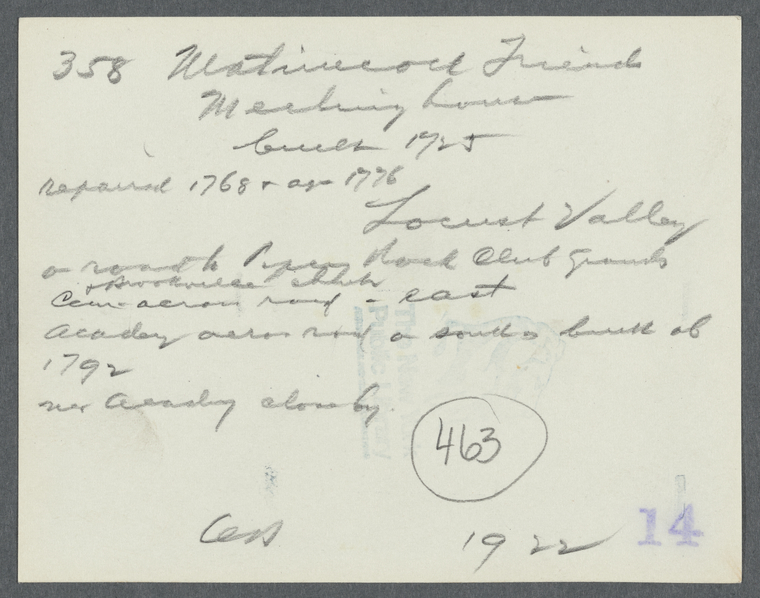 358 Matinecock Friends
Meeting house
built 1725
repaired 1768 + ag 1776
Locust Valley
on road to Piping Rock Club Grounds
+ Brookville
Cem. across road - east
Academy across road on south built ab
1792
new Academy close by.
463
1922
14